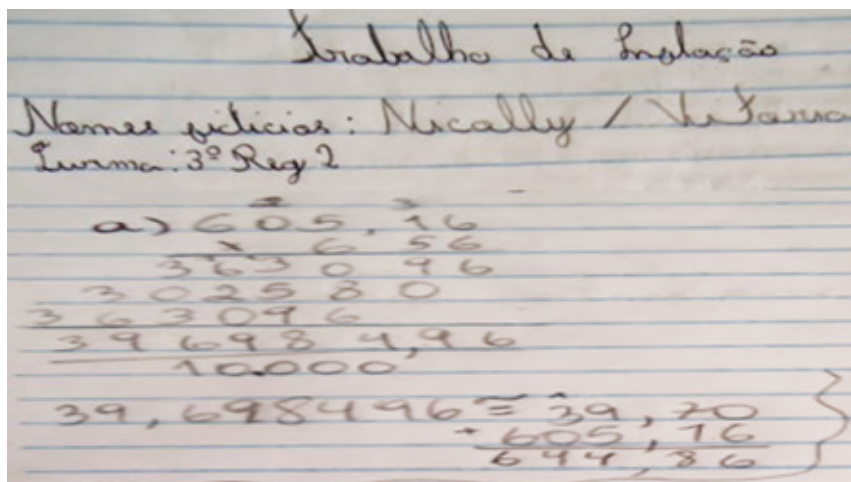 Trabalho de Inflação
Nomes fictícios: Nically / Vitania
Turma: 3º Reg 2
2 3
a) 605,16
x 6 56
3630 96
302580
363096
396984,96
10.000
39,698496 ≅ 39,70
+ 605,16
644,86